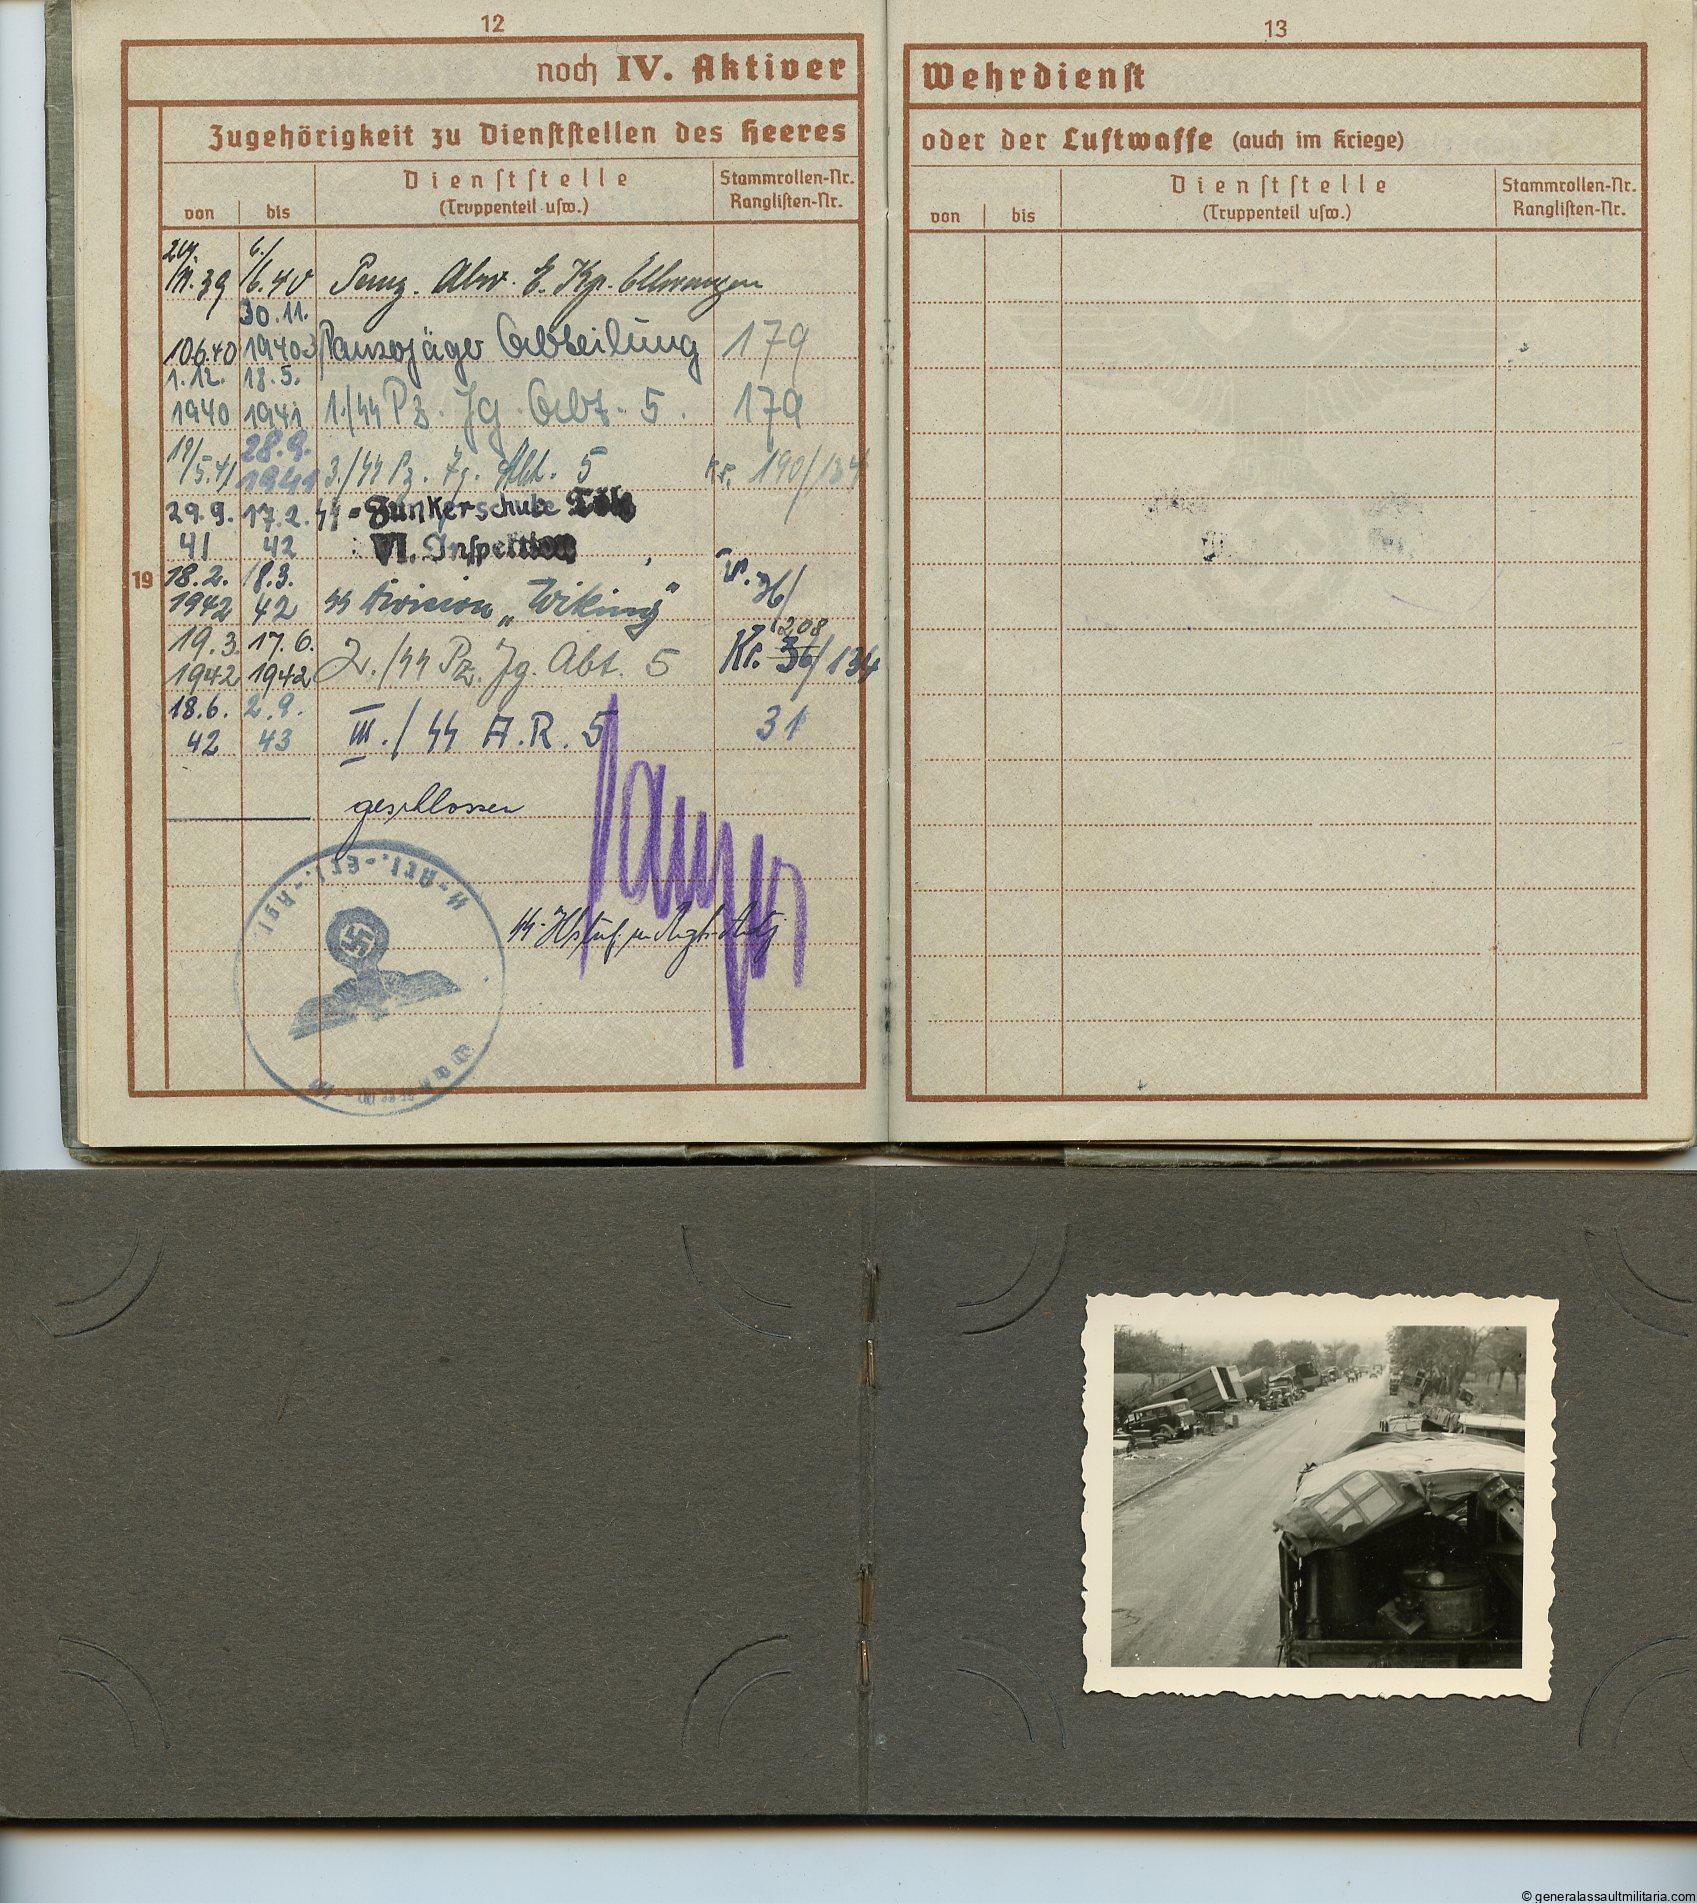 12
noch IV. Aktiver
Zugehörigkeit zu Dienststellen des Heeres
von
bis
Dienststelle
(Truppenteil usw.)
Stammrollen-Nr.
Ranglisten-Nr.
19
39
6.
6.40
Panz. Abw. E. Kp. Ellwangen
10.6.40
30.11.
1940
Panzerjäger Abteilung
179
1.12.
1940
18.5.
1941
1./SS Pz. Jg. Abt. 5.
179
19/5.41
28.9.
1941
3./SS Pz. Jg. Abt. 5
Kr. 190/134
29.9.
41
17.2.
42
SS-Junkerschule Tölz
VI. Inspektion
18.2.
1942
18.3.
42
SS Division „Wiking"
36/
19.3.
1942
17.6.
1942
2./SS Pz. Jg. Abt. 5
Kr. 36/134
1208
18.6.
42
2.9.
43
III./SS A.R. 5
31
geschlossen
SS-Art.-Ers.-Rgt.
SS-Hstuf. u. Rgts. Adj
13
Wehrdienst
oder der Luftwaffe (auch im Kriege)
von
bis
Dienststelle
(Truppenteil usw.)
Stammrollen-Nr.
Ranglisten-Nr.
© generalassaultmilitaria.com